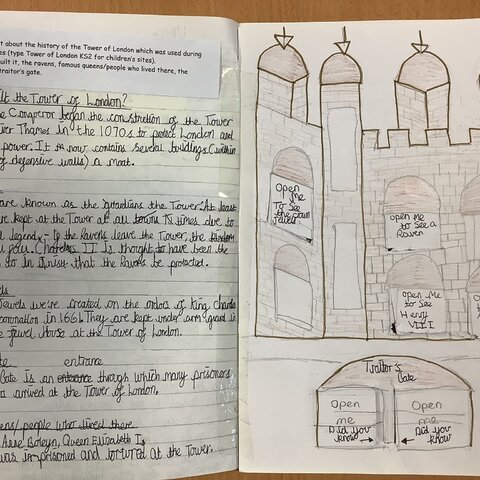 t about the history of the Tower of London which was used during
es (type Tower of London KS2 for children's sites).
uilt it, the ravens, famous queens/people who lived there, the
raitor's gate.
lt the Tower of London?
e Conqueror began the construction of the Tower
ver Thames in the 1070s to protect London and
power. It now contains several buildings (within
of defensive walls) a moat.
are known as the guardians the Tower. At least
re kept at the Tower at all times due to
d legend - If the Ravens leave the Tower, the
fall. Charles II is thought to have been the
to insist that the Ravens be protected.
els
Jewels we're created on the orders of King Charles
coronation in 1661. They are kept under arm guard in
e Jewel House at the Tower of London.
ate entrance
Gate is an entrance through which many prisoners
s arrived at the Tower of London.
ens/people who lived there
Anne Boleyn, Queen Elizabeth I,
was imprisoned and tortured at the Tower.
Open
me
To see
the crown
Jewels
Open me
to see a
Raven
Open me
to see
Henry
VIII
Traitor's
Gate
Open
me
Did you
know
Open
me
Did you
know